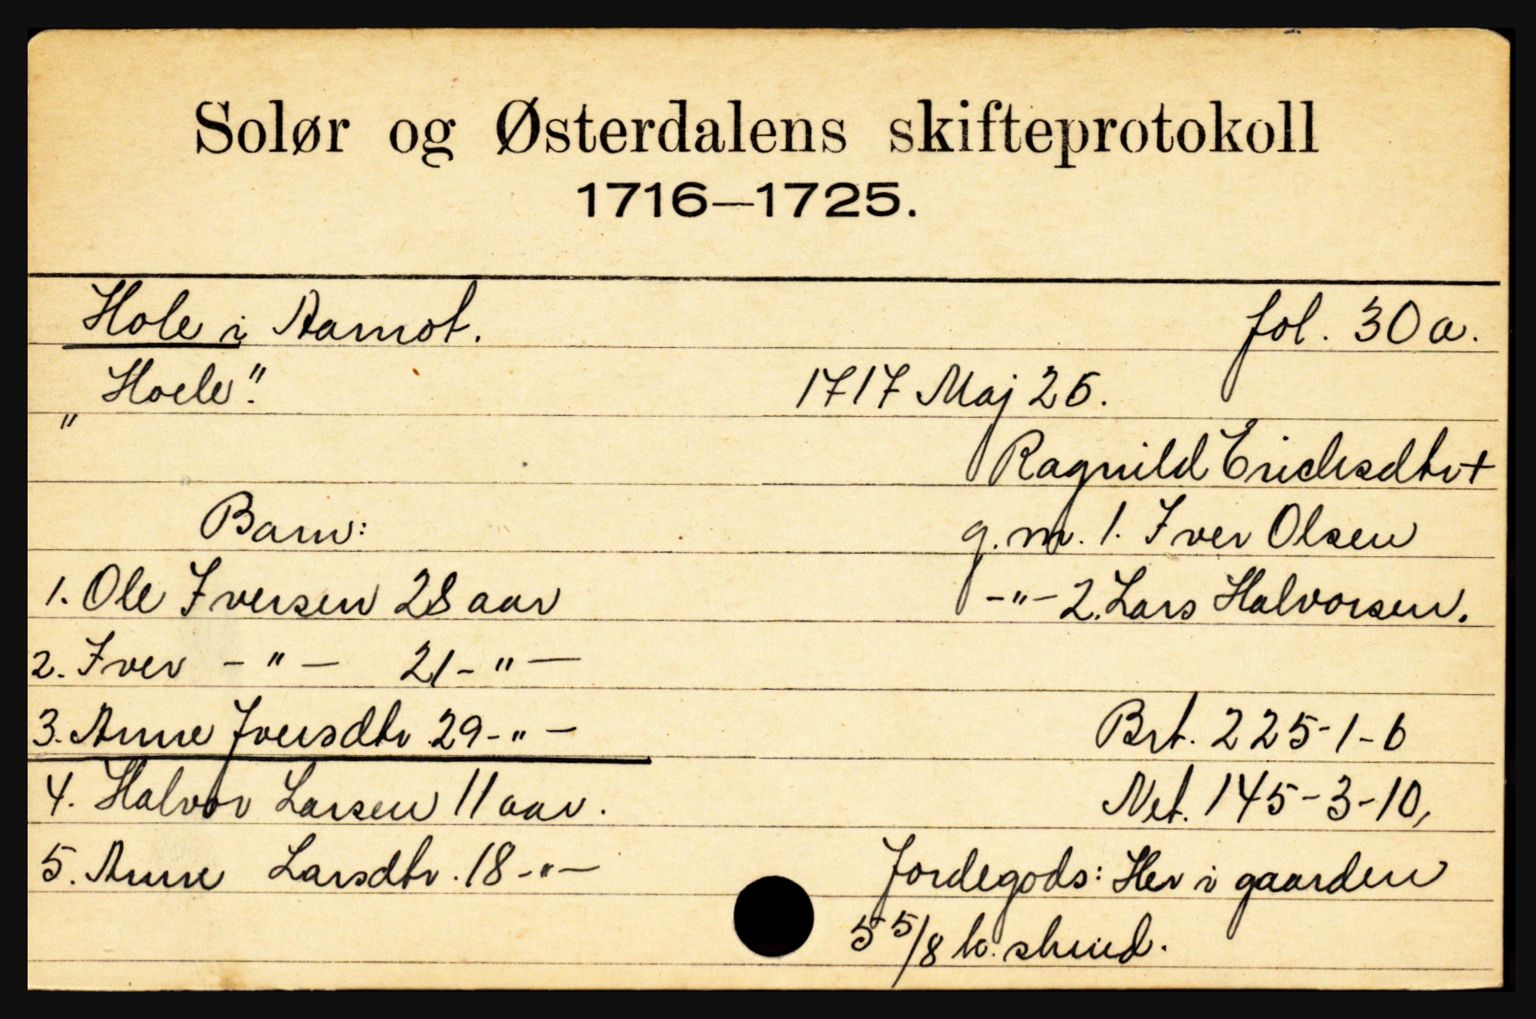 Solør og Østerdalens skifteprotokoll
1716—1725.
Hole i Aamot. fol. 30 a.
„Hoele“. 1717 Maj 25.
Ragnild Erichsdtr +
Barn: g. m. 1. Iver Olsen
1. Ole Iversen 28 aar -"- 2. Lars Halvorsen.
2. Iver -"- 21 -"-
3. Anne Iversdtr 29 -"- Brt. 225-1-6
4. Halvor Larsen 11 aar. Net. 145-3-10,
5. Anne Larsdtr. 18 -"- Jordegods: Her i gaarden
5 5/8 k. skind.